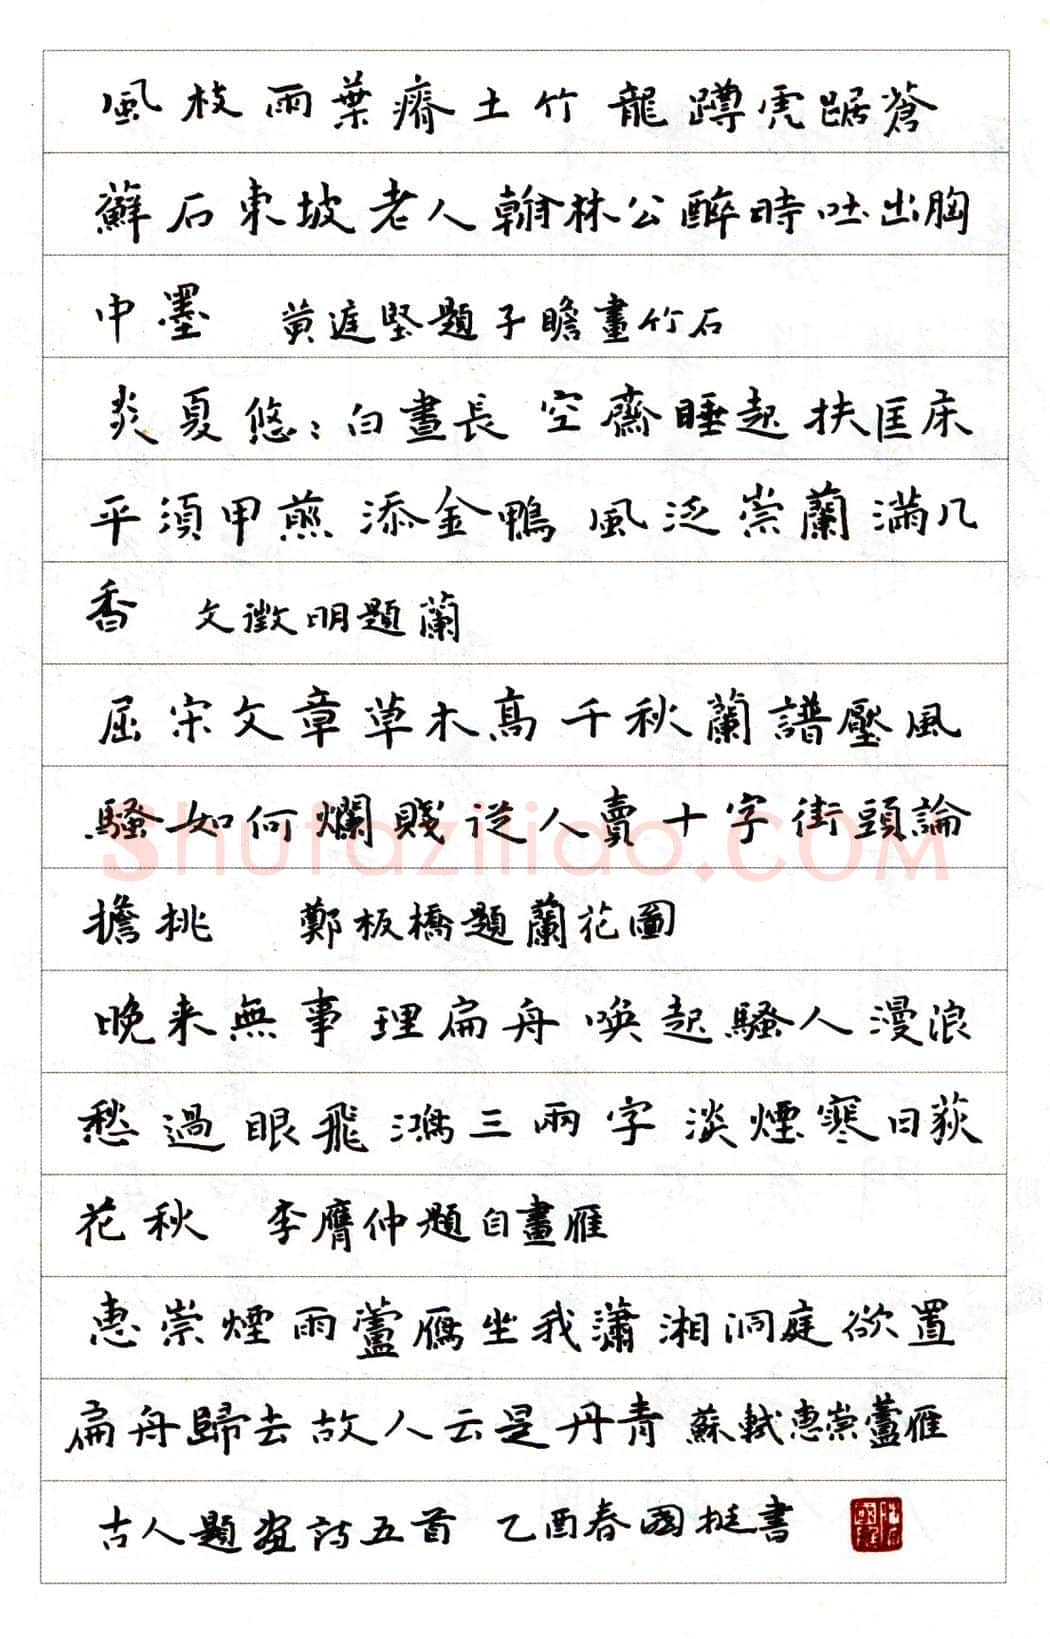 風枝雨葉瘠土竹龍蹲虎踞蒼
蘚石東坡老人翰林公醉時吐出胸
中墨 黄庭堅題子瞻畫竹石
炎夏悠：白晝長空齋睡起扶匡床
平須甲煎添金鴨風泛崇蘭滿几
香 文徵明題蘭
屈宋文章草木高千秋蘭譜壓風
騷如何爛賤從人賣十字街頭論
擔挑 鄭板橋題蘭花圖
晚来無事理扁舟唤起騷人漫浪
愁過眼飛鴻三兩字淡煙寒日荻
花秋 李膺仲題自畫雁
惠崇煙雨蘆雁坐我瀟湘洞庭欲置
扁舟歸去故人云是丹青 蘇軾惠崇蘆雁
古人題畫詩五首 乙酉春國挺書
Shufaziliao.COM